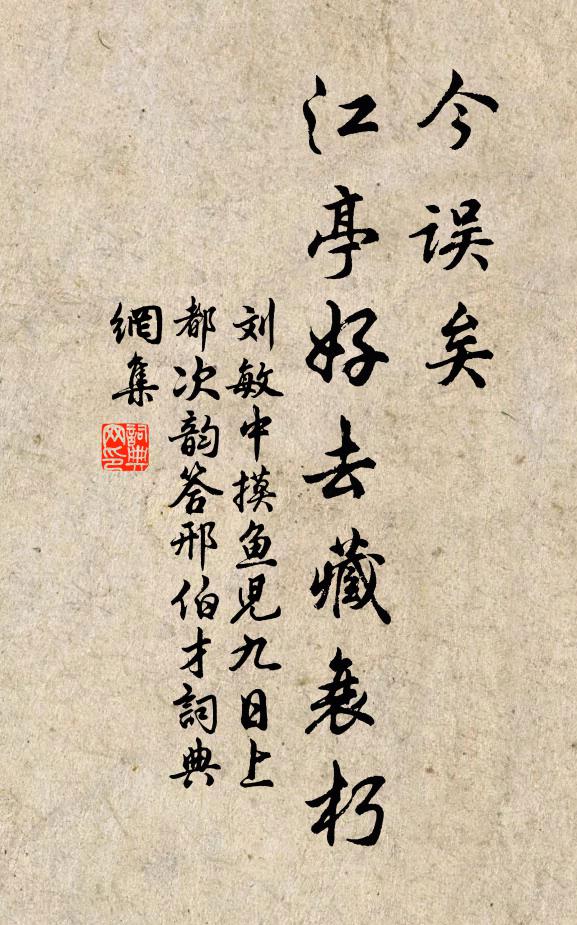 今误矣
江亭好去藏衰朽
刘敏中摸鱼児九日上
都次韵答邢伯才詞典
網集
詞典
网印